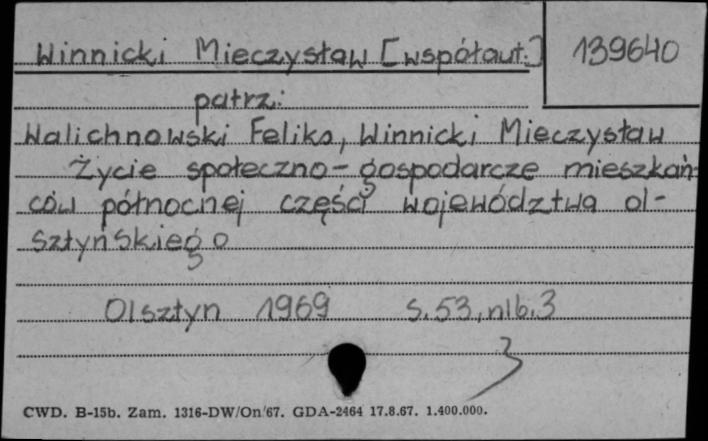 Winnicki Mieczysław [współaut.] 139640
patrz:
Walichnowski Feliks, Winnicki Mieczysław
Życie społeczno-gospodarcze mieszkań-
ców północnej części województwa ol-
sztyńskiego
Olsztyn 1969 s. 53, nlb. 3
3
CWD. B-15b. Zam. 1316-DW/On/67. GDA-2464 17.8.67. 1.400.000.